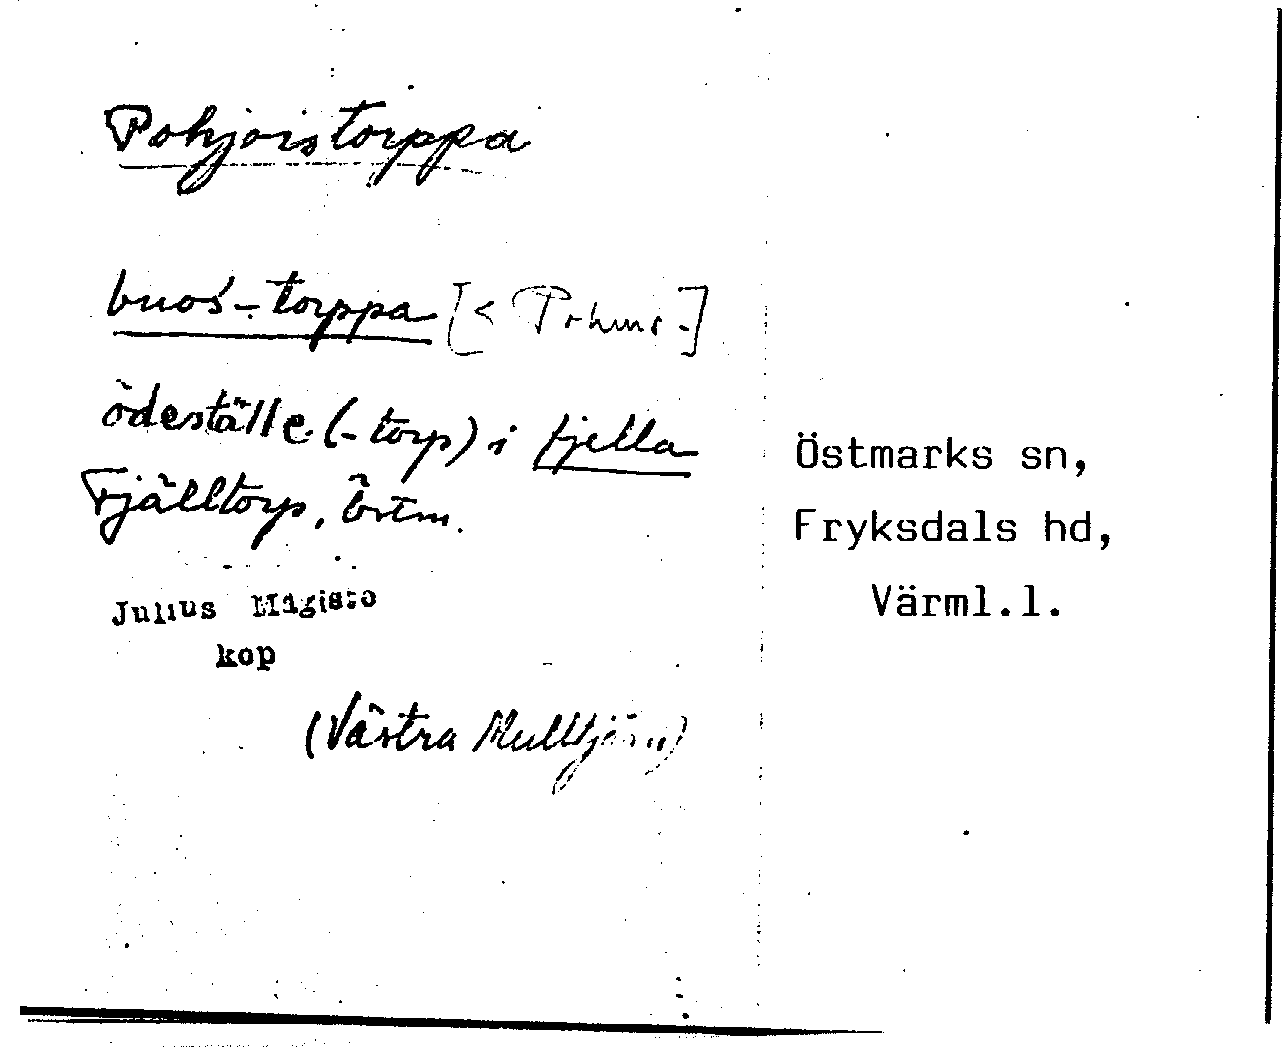 Pohjoistorppa
buos-torppa [<
ödeställe (-torp) i fjella
Fjälltorp, Östm.
Julius Mägiste
kop
(Västra Mulltjärn)
Östmarks sn,
Fryksdals hd,
Värml.l.